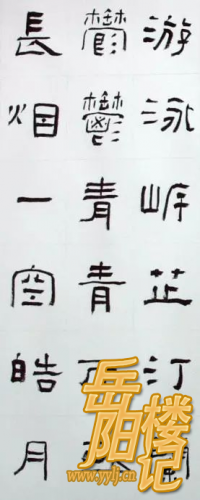 游泳岸芷汀
鬱鬱青青
長烟一空皓月
岳阳楼记
www.yylj.cn